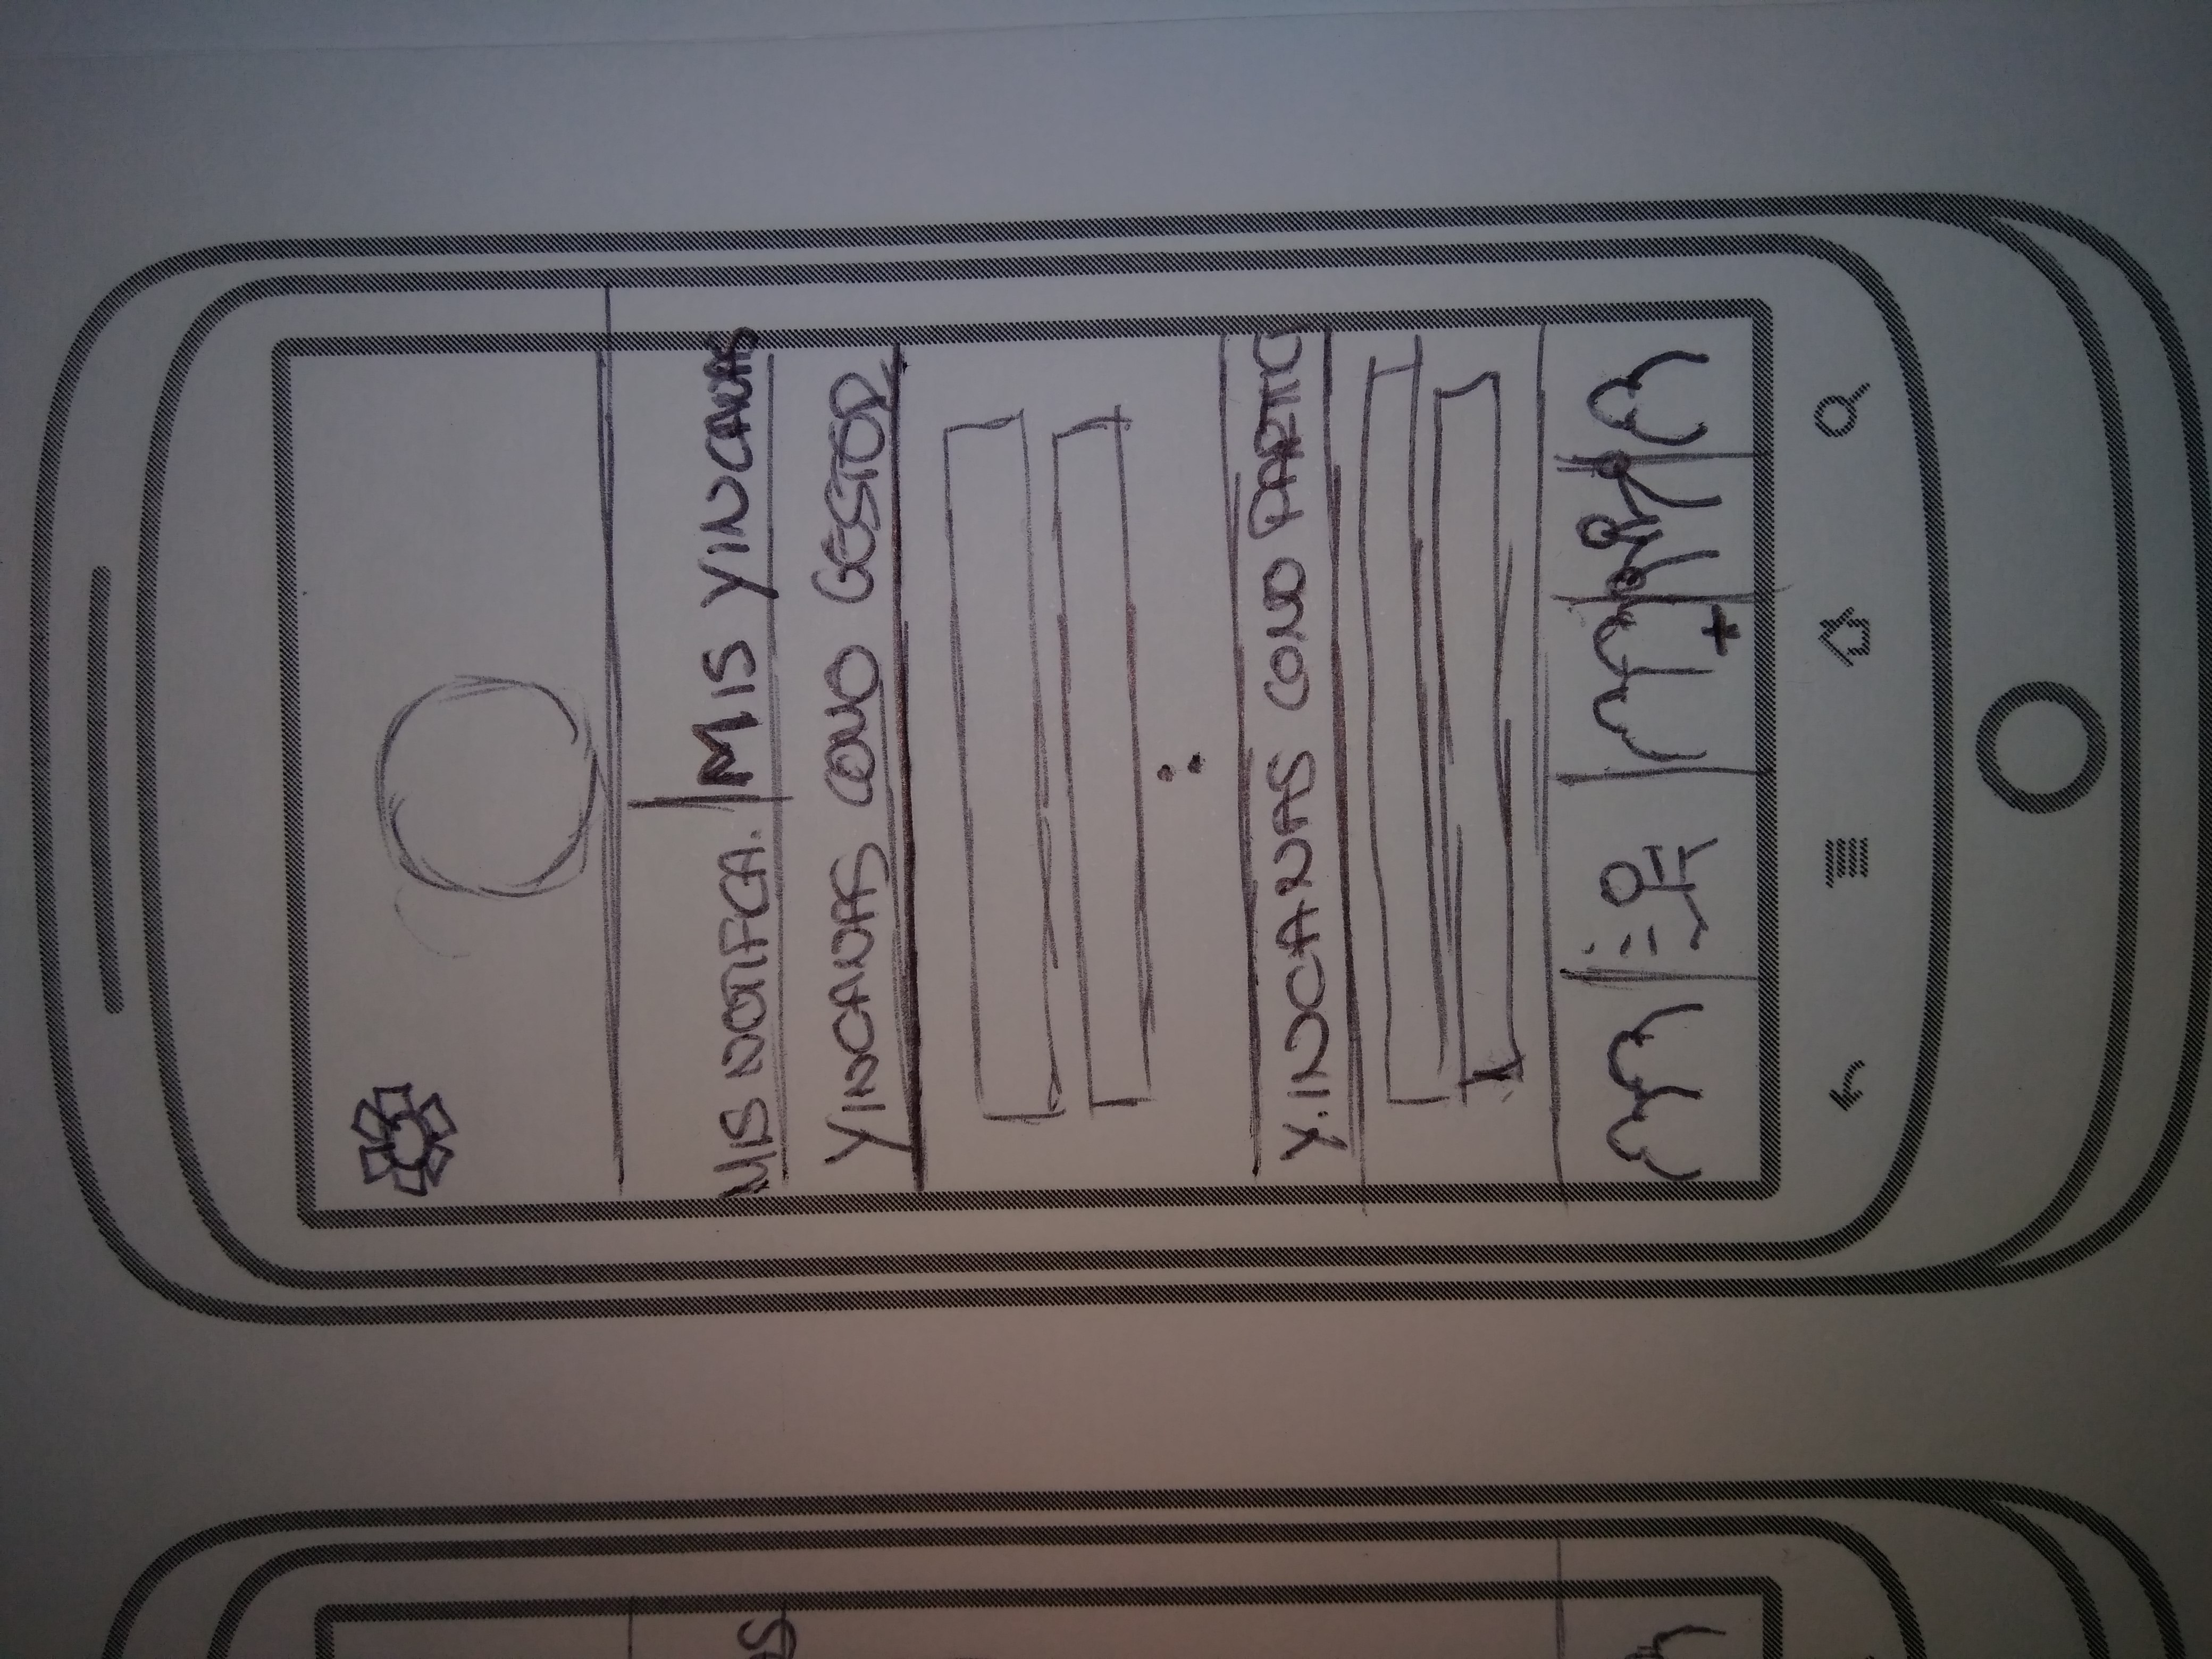 MIS NOTIFICA. MIS YINCANAS
YINCANAS COMO GESTOR
Y.INCANAS COMO PARTIC